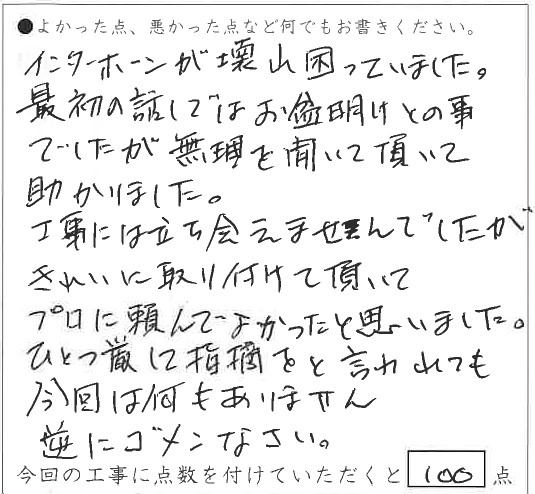 ●よかった点、悪かった点など何でもお書きください。
インターホーンが壊れ困っていました。
最初の話しではお盆明けとの事
でしたが無理を聞いて頂いて
助かりました。
工事には立ち会えませんでしたが
きれいに取り付けて頂いて
プロに頼んでよかったと思いました。
ひとつ厳して指摘をと言われても
今回は何もありません
逆にゴメンなさい。
今回の工事に点数を付けていただくと 100 点